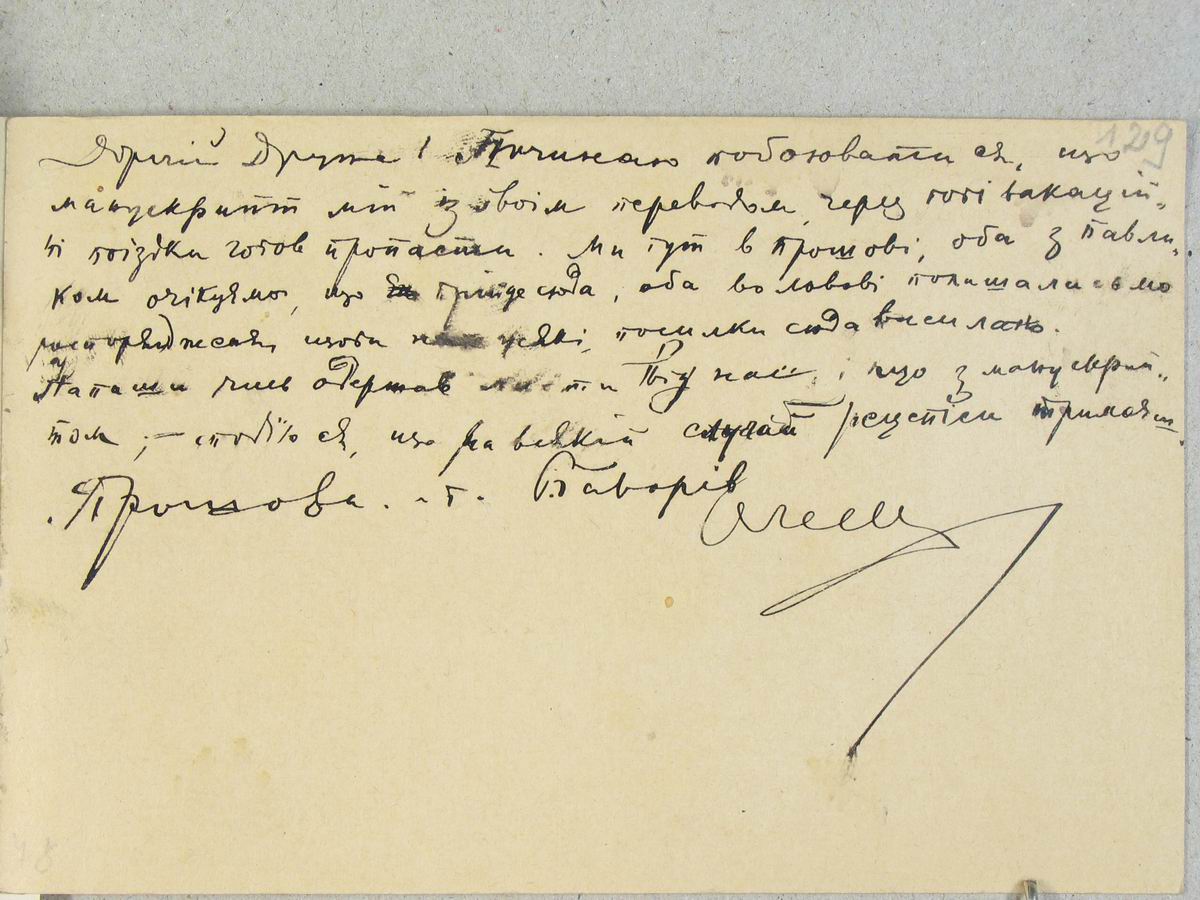 Дорогий Друже! Починаю побоюватися, що
манускрипт мій із твоїм переводом через тоті вакацій-
ні поїздки готов пропасти. Ми тут в Грошові, оба з Павли-
ком очікуємо, що прийде сюда, оба во Львові полишалисьмо
розпорядження, щоби усякі посилки сюда висилано.
Напиши чись одержав листи від нас, і що з манускрип-
том; — сподіюся, що на всякий случай рецепіси тримаєш.
Грошова. п. Баворів
129